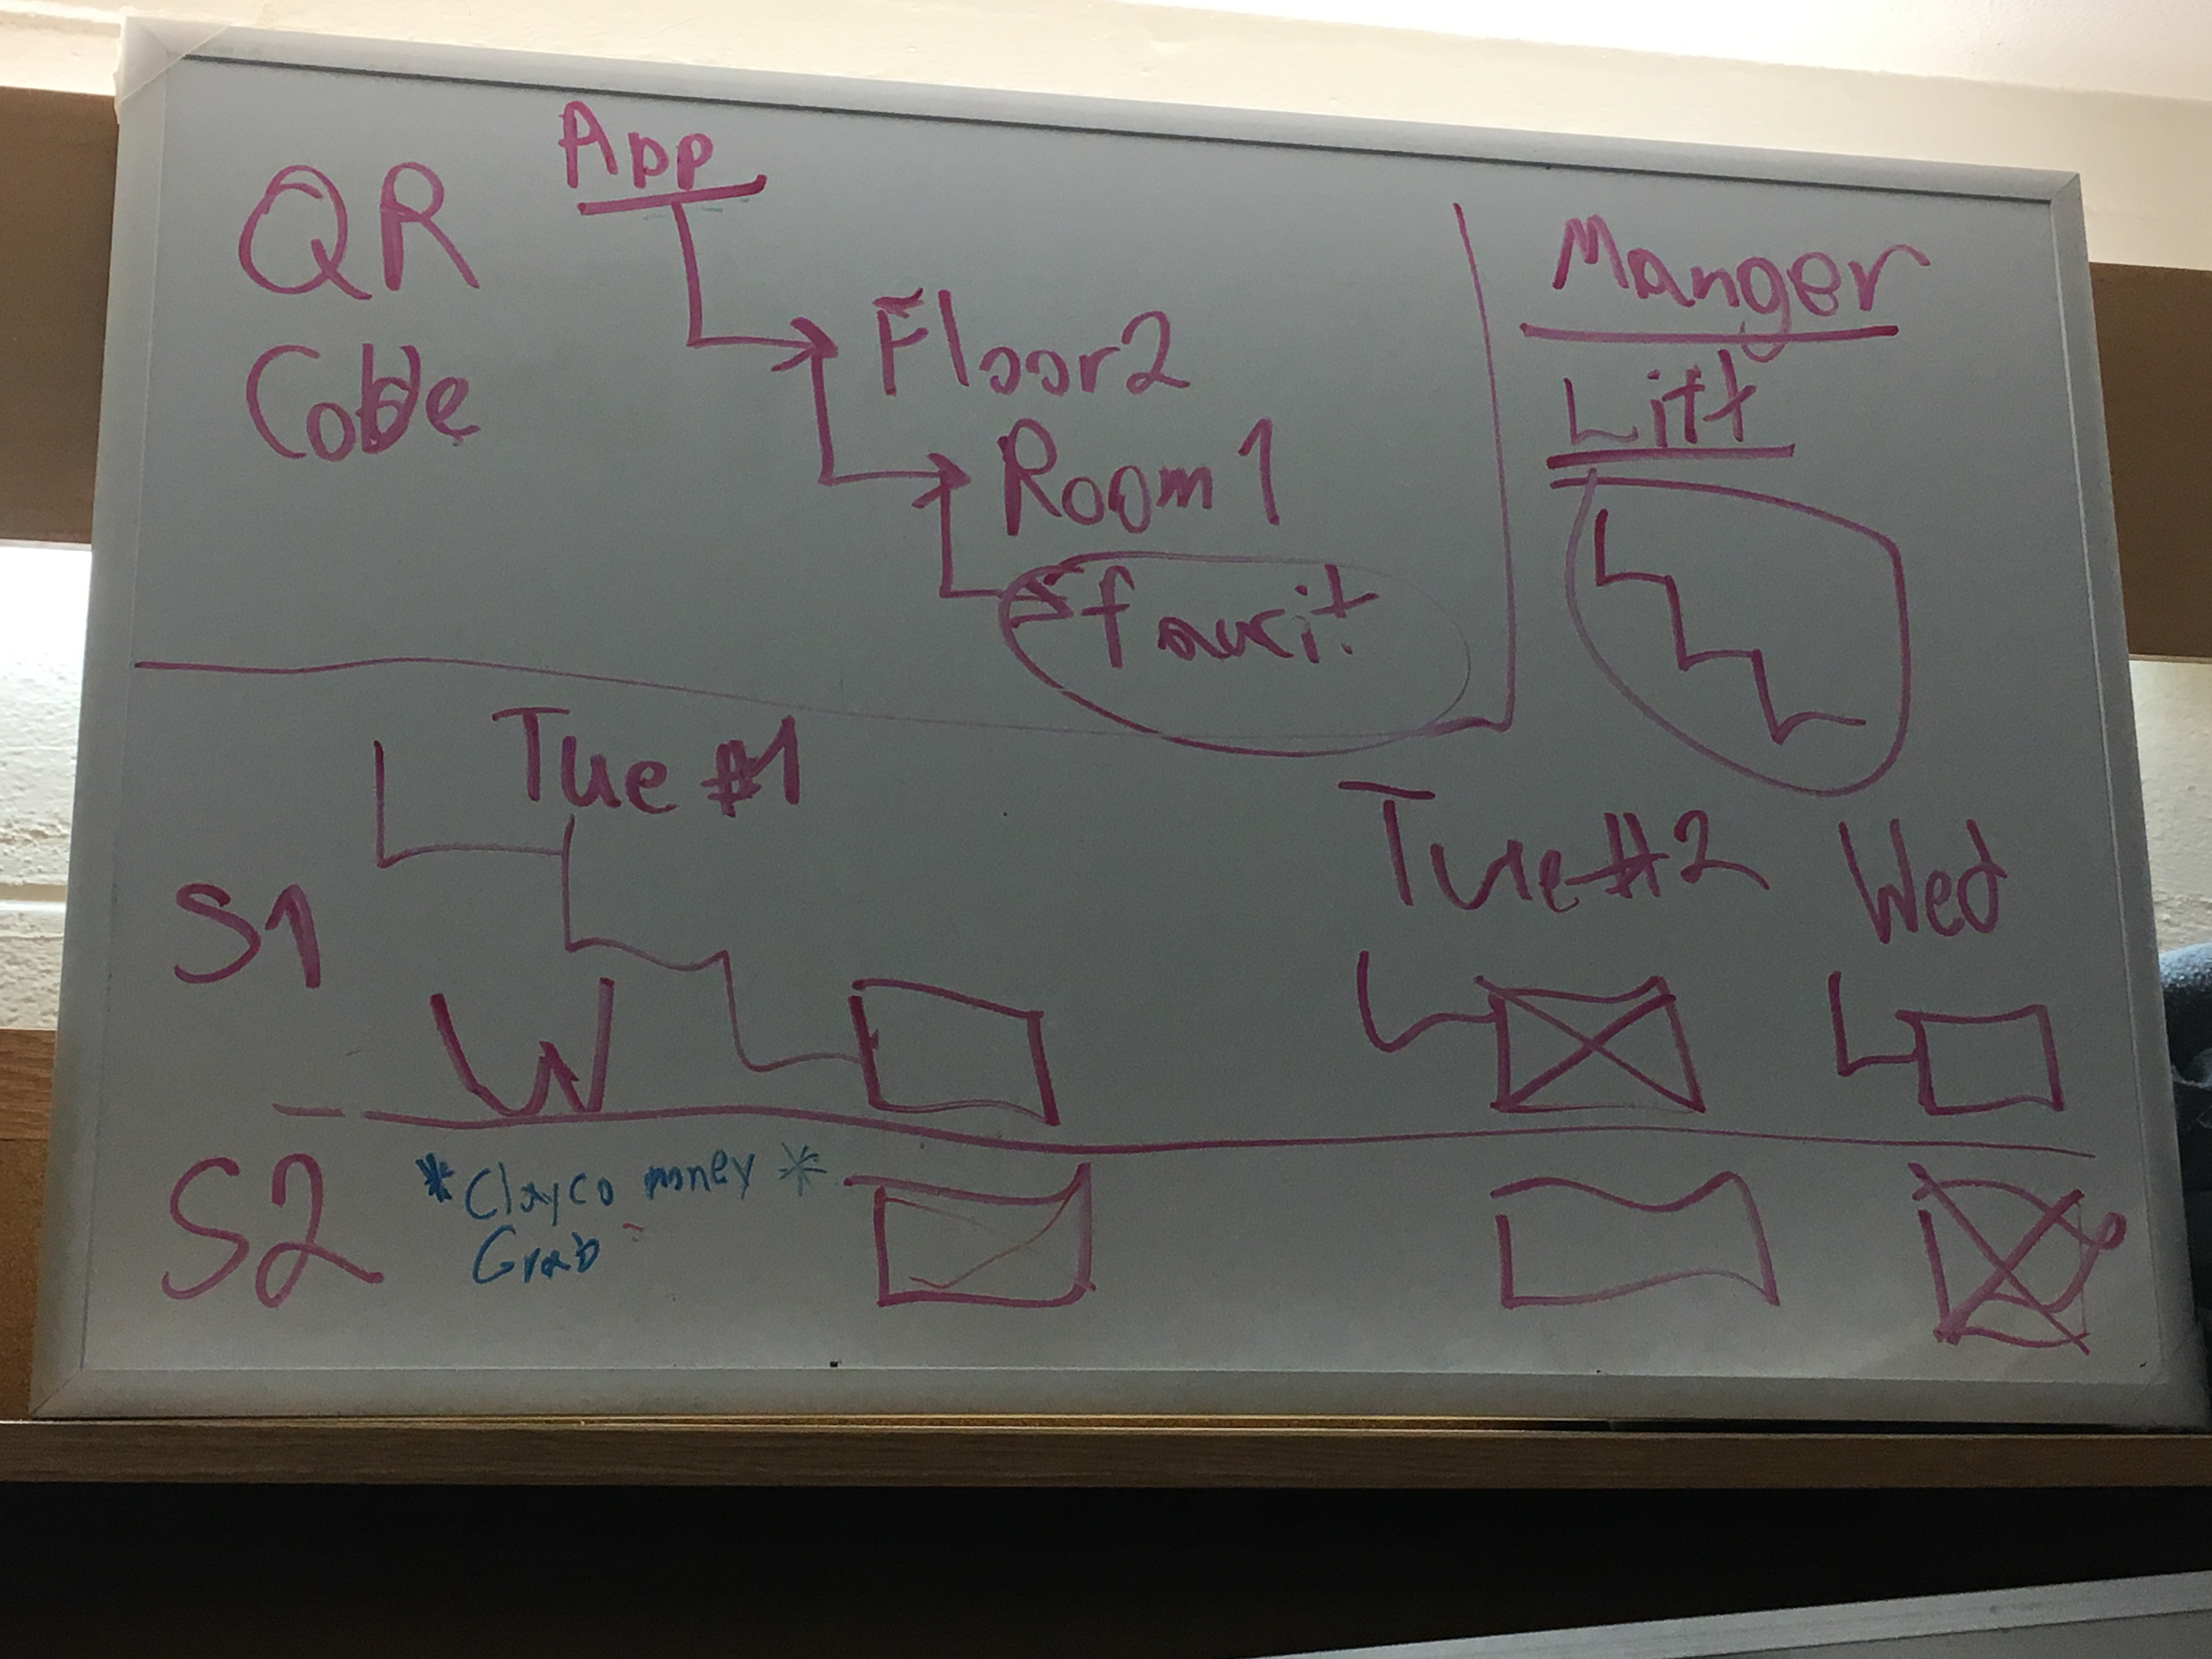 QR
Code
App
Floor2
Room 1
favrit
Manger
Lift
Tue #1
Tue #2
Wed
S1
W
S2
*Clayco money *
Grab